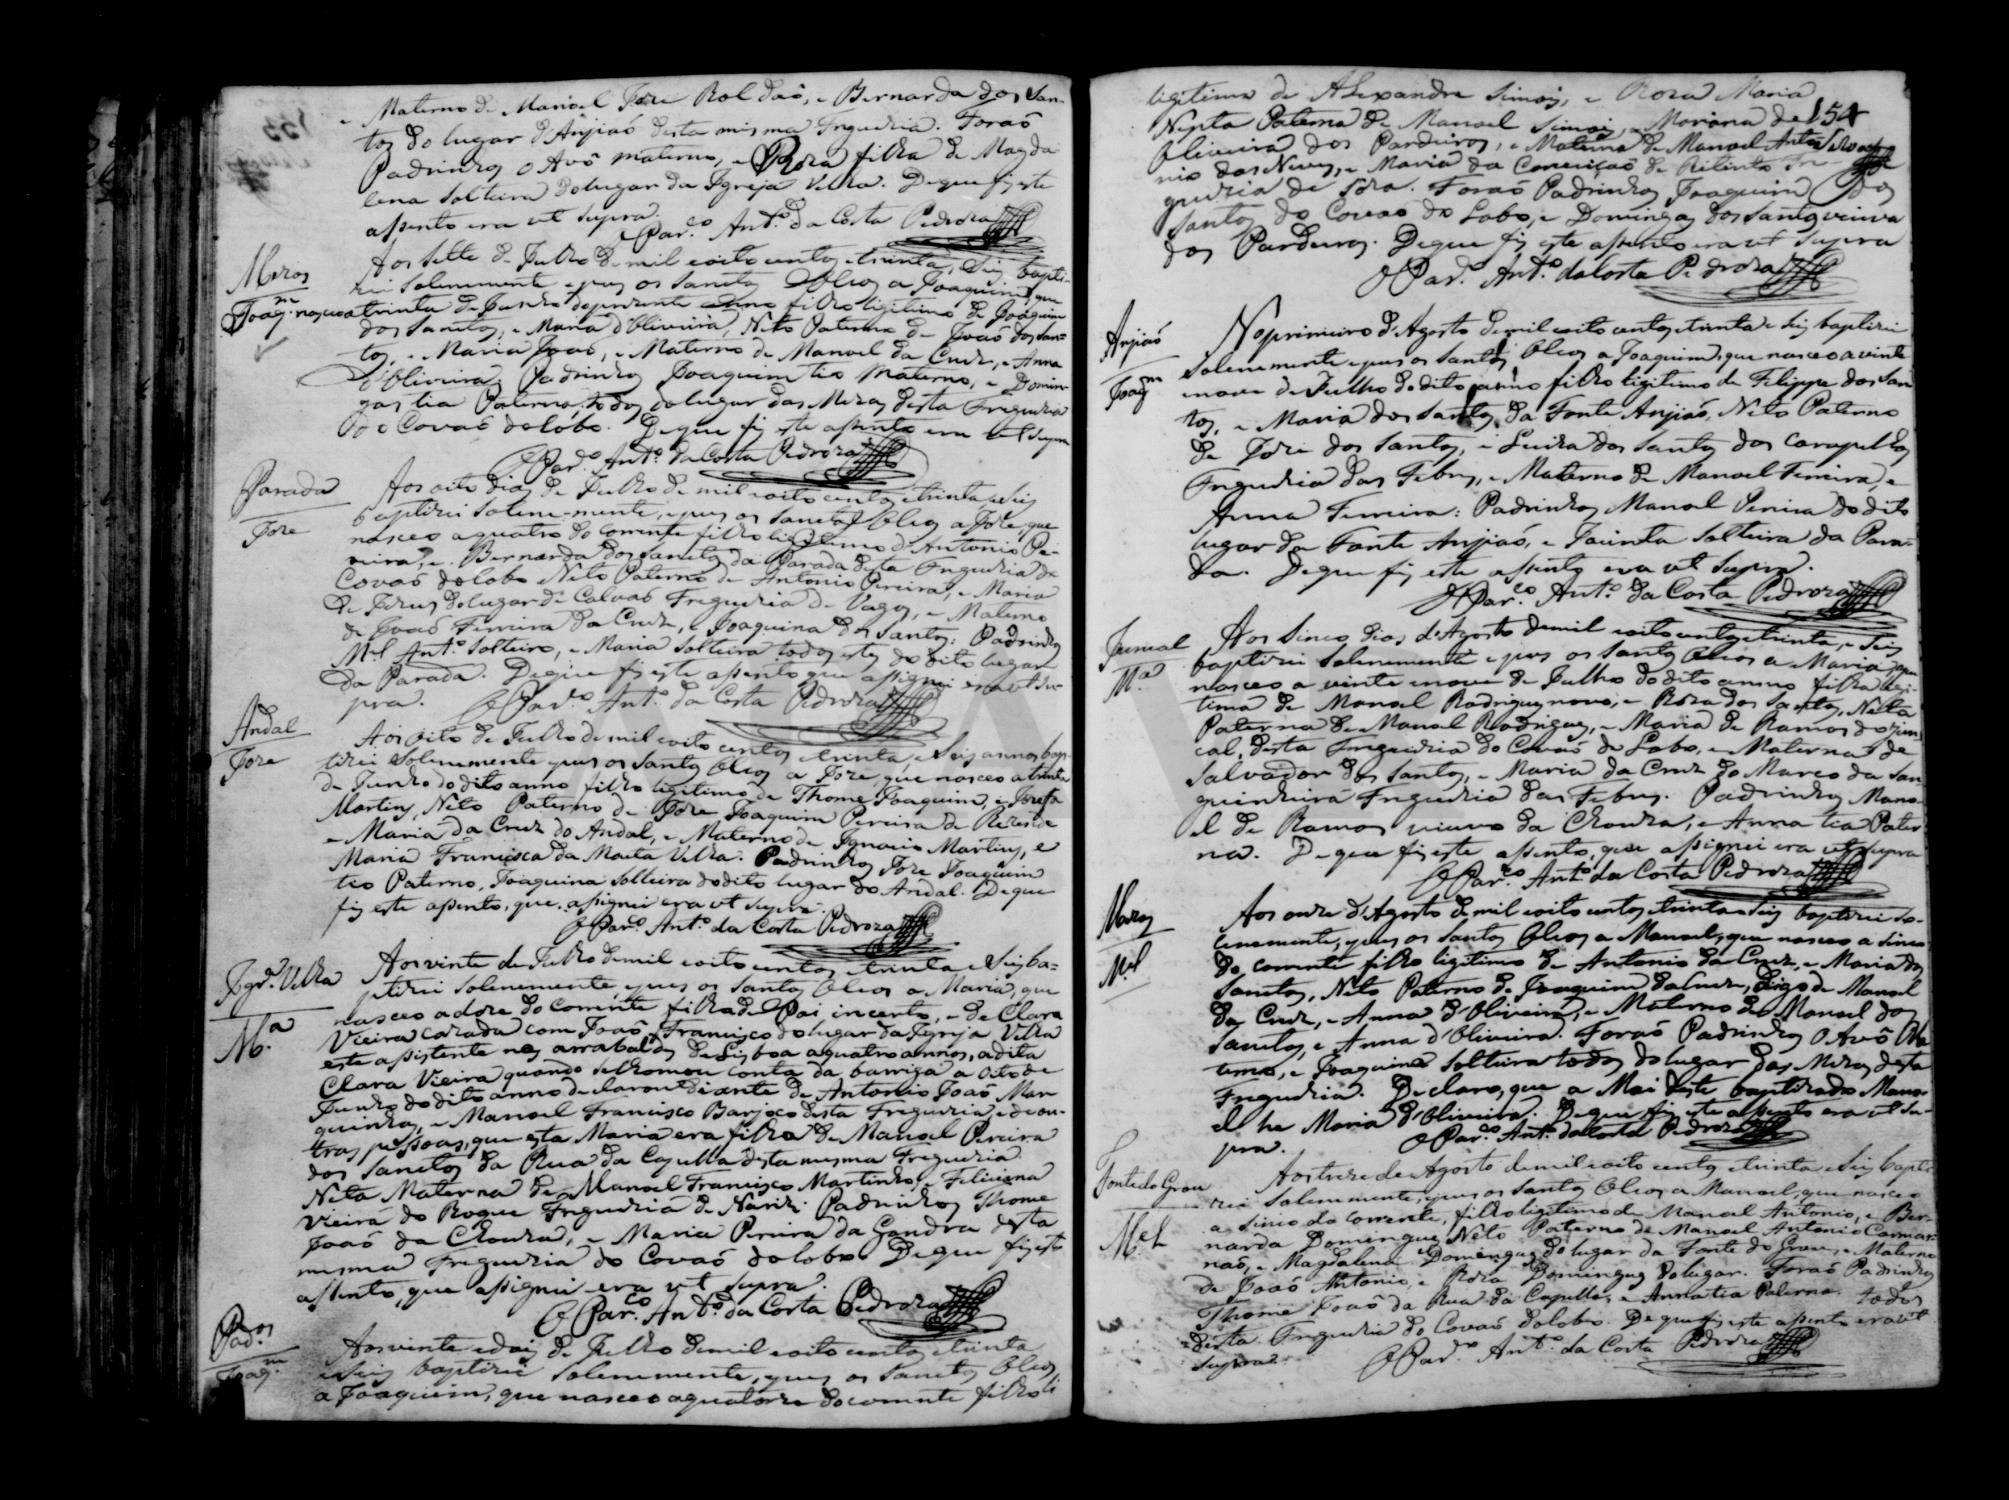 e Materno de Manoel Joze Roldaõ, e Bernarda dos San-
tos do lugar d'Anjiaõ desta mesma Freguezia. Foraõ
Padrinhos o Avô materno, e Roza filha de Magda
lena Solteira do lugar da Igreja Velha. De que fiz este
assento era ut supra.
O Par.º Ant.º da Costa Pedroza
Meros
Joaq.m
Aos sette de Julho de mil e oito centos e trinta, e Seis bapti-
zei solenemente e puz os Sanctos Oleos a Joaquim, que
nasceo a trinta de Junho do prezente anno filho legitimo de Joaquim
dos Sanctos, e Maria d'Oliveira, Neto Paterno de Joaõ dos San-
tos, e Maria Joaõ, e Materno de Manoel da Cruz, e Anna
d'Oliveira, Padrinhos Joaquim tio Materno, e Domin-
gas tia Paterna, todos do lugar das Meros desta Freguezia
do Covaõ do Lobo. De que fiz este assento era ut supra
O Par.º Ant.º da Costa Pedroza
Parada
Joze
Aos oito dias de Julho de mil e oito centos e trinta e Seis
baptizei solene-mente, e puz os Sanctos Oleos a Joze, que
nasceo a quatro do corrente filho legitimo d'Antonio Pe-
reira, e Bernarda dos Sanctos da Parada desta Freguezia de
Covaõ do Lobo Neto Paterno de Antonio Pereira, e Maria
de Jezus do lugar de Calvaõ Freguezia de Vagos, e Materno
de Joaõ Ferreira da Cruz, e Joaquina dos Santos: Padrinhos
M.el Ant.º Solteiro, e Maria Solteira todos estes do dito lugar
da Parada. De que fiz este assento que assignei era ut su-
pra.
O Par.º Ant.º da Costa Pedroza
Andal
Joze
Aos Oito de Julho de mil e oito centos e trinta, e Seis annos bap-
tizei Solenemente e puz os Santos Oleos a Joze, que nasceo a trinta
de Junho do dito anno filho legitimo de Thome Joaquim, e Jozefa
Martins, Neto Paterno de Joze Joaquim Pereira de Rezende
e Maria da Cruz do Andal, e Materno de Ignacio Martins, e
Maria Francisca da Moita Velha. Padrinhos Joze Joaquim
tio Paterno, Joaquina Solteira do dito lugar do Andal. De que
fiz este assento, que assignei era ut supra.
O Par.º Ant.º da Costa Pedroza
Igr.ª Velha
M.ª
Aos vinte de Julho de mil e oito centos e trinta e Seis ba=
ptizei solenemente e puz os Santos Oleos a Maria, que
nasceo a doze do corrente filha de Pai incerto, e de Clara
Vieira cazada com Joaõ Francisco do lugar da Igreja Velha
este assistente nos arrabaldes de Lisboa a quatro annos, a dita
Clara Vieira quando se tomou conta da barriga a oito de
Junho do dito anno declarou diante de Antonio Joaõ Mar
quinhos, e Manoel Francisco Barjoco desta Freguezia e de ou-
tras pessoas, que esta Maria era filha de Manoel Pereira
dos Sanctos da Rua da Capella desta mesma Freguezia.
Neta Materna de Manoel Francisco Martinho e Feliciana
Vieira do Roque Freguezia de Nariz. Padrinhos Thome
Joaõ da Chouza, e Maria Pereira da Gandra desta
mesma Freguezia do Covaõ do Lobo De que fiz este
assento, que assignei era ut supra.
O Par.co Ant.º da Costa Pedroza
Pad.os
Joaq.m
Aos vinte e dois de Julho de mil e oito centos e trinta
e Seis baptizei solenemente, e puz os Sanctos Oleos
a Joaquim, que nasceo a quatorze do corrente filho li
legitima de Alexandre Simois, e Roza Maria
154
Nepta Paterna de Manoel Simois, e Mariana de
Oliveira dos Pardeiros, e Materna de Manoel Anto
nio das Neves, e Maria da Conceiçaõ de Fre-
guezia de Soza. Foraõ Padrinhos Joaquim dos
Santos do Covaõ do Lobo, e Domingas dos Santos viuva
dos Pardeiros. De que fiz este assento era ut supra
O Par.º Ant.º da Costa Pedroza
Anjiaõ
Joaq.m
No primeiro d'Agosto de mil e oito centos e trinta e Seis baptizei
solenemente e puz os Santos Oleos a Joaquim, que nasceo a vinte
e nove de Julho do dito anno filho ligitimo de Filippe dos San
tos, e Maria dos Santos da Fonte Anjiaõ, Neto Paterno
de Joze dos Santos, e Luiza dos Santos dos Carapelhos
Freguezia das Febres, e Materno de Manoel Ferreira, e
Anna Ferreira: Padrinhos Manoel Pereira do dito
lugar da Fonte Anjiaõ, e Jacinta Solteira da Para-
da. De que fiz este assento era ut supra.
O Par.co Ant.º da Costa Pedroza
Juncal
M.ª
Aos Sinco dias d'Agosto de mil e oito centos e trinta, e Seis
baptizei Solenemente e puz os Santos Oleos a Maria, que
nasceo a vinte e nove de Julho do dito anno filha legi-
tima de Manoel Rodrigues novo, e Roza dos Santos, Neta
Paterna de Manoel Rodrigues, e Maria de Ramos do Jun
cal, desta Freguezia do Covaõ do Lobo, e Materna de
Salvador dos Santos, e Maria da Cruz do Marco da San
guinheira Freguezia das Febres. Padrinhos Mano-
el de Ramos viuvo da Chouza, e Anna tia Pater
na. De que fiz este assento, que assignei era ut supra
O Par.co Ant.º da Costa Pedroza
Meros
M.el
Aos onze d'Agosto de mil e oito centos e trinta e Seis baptizei so-
lenemente, e puz os Santos Oleos a Manoel, que nasceo a sinco
do corrente filho ligitimo de Antonio da Cruz, e Maria dos
Sanctos, Neto Paterno de Joaquim da Cruz, digo de Manoel
da Cruz, e Anna d'Oliveira, e Materno de Manoel dos
Sanctos, e Anna d'Oliveira. Foraõ Padrinhos O Avô Ma
terno, e Joaquina Solteira todos do lugar das Meros desta
Freguezia. Declaro, que a Mai deste baptizado Mano-
el he Maria d'Oliveira. De que fiz este assento era ut su-
pra.
O Par.º Ant.º da Costa Pedroza
Fonte do Grou
M.el
Aos treze de Agosto de mil e oito centos e trinta e Seis bapti-
zei Solenemente, e puz os Santos Oleos a Manoel, que nasceo
a sinco do corrente, filho legitimo de Manoel Antonio, e Ber-
narda Domingues Neto Paterno de Manoel Antonio Caramo-
naõ, e Magdalena Domingues do lugar da Fonte do Grou, e Materno
de Joaõ Antonio, e Roza Domingues do lugar. Foraõ Padrinhos
Thome Joaõ da Rua da Capella, e Anna tia Paterna. todos
desta Freguezia do Covaõ do Lobo. De que fiz este assento era ut
supra.
O Par.º Ant.º da Costa Pedroza